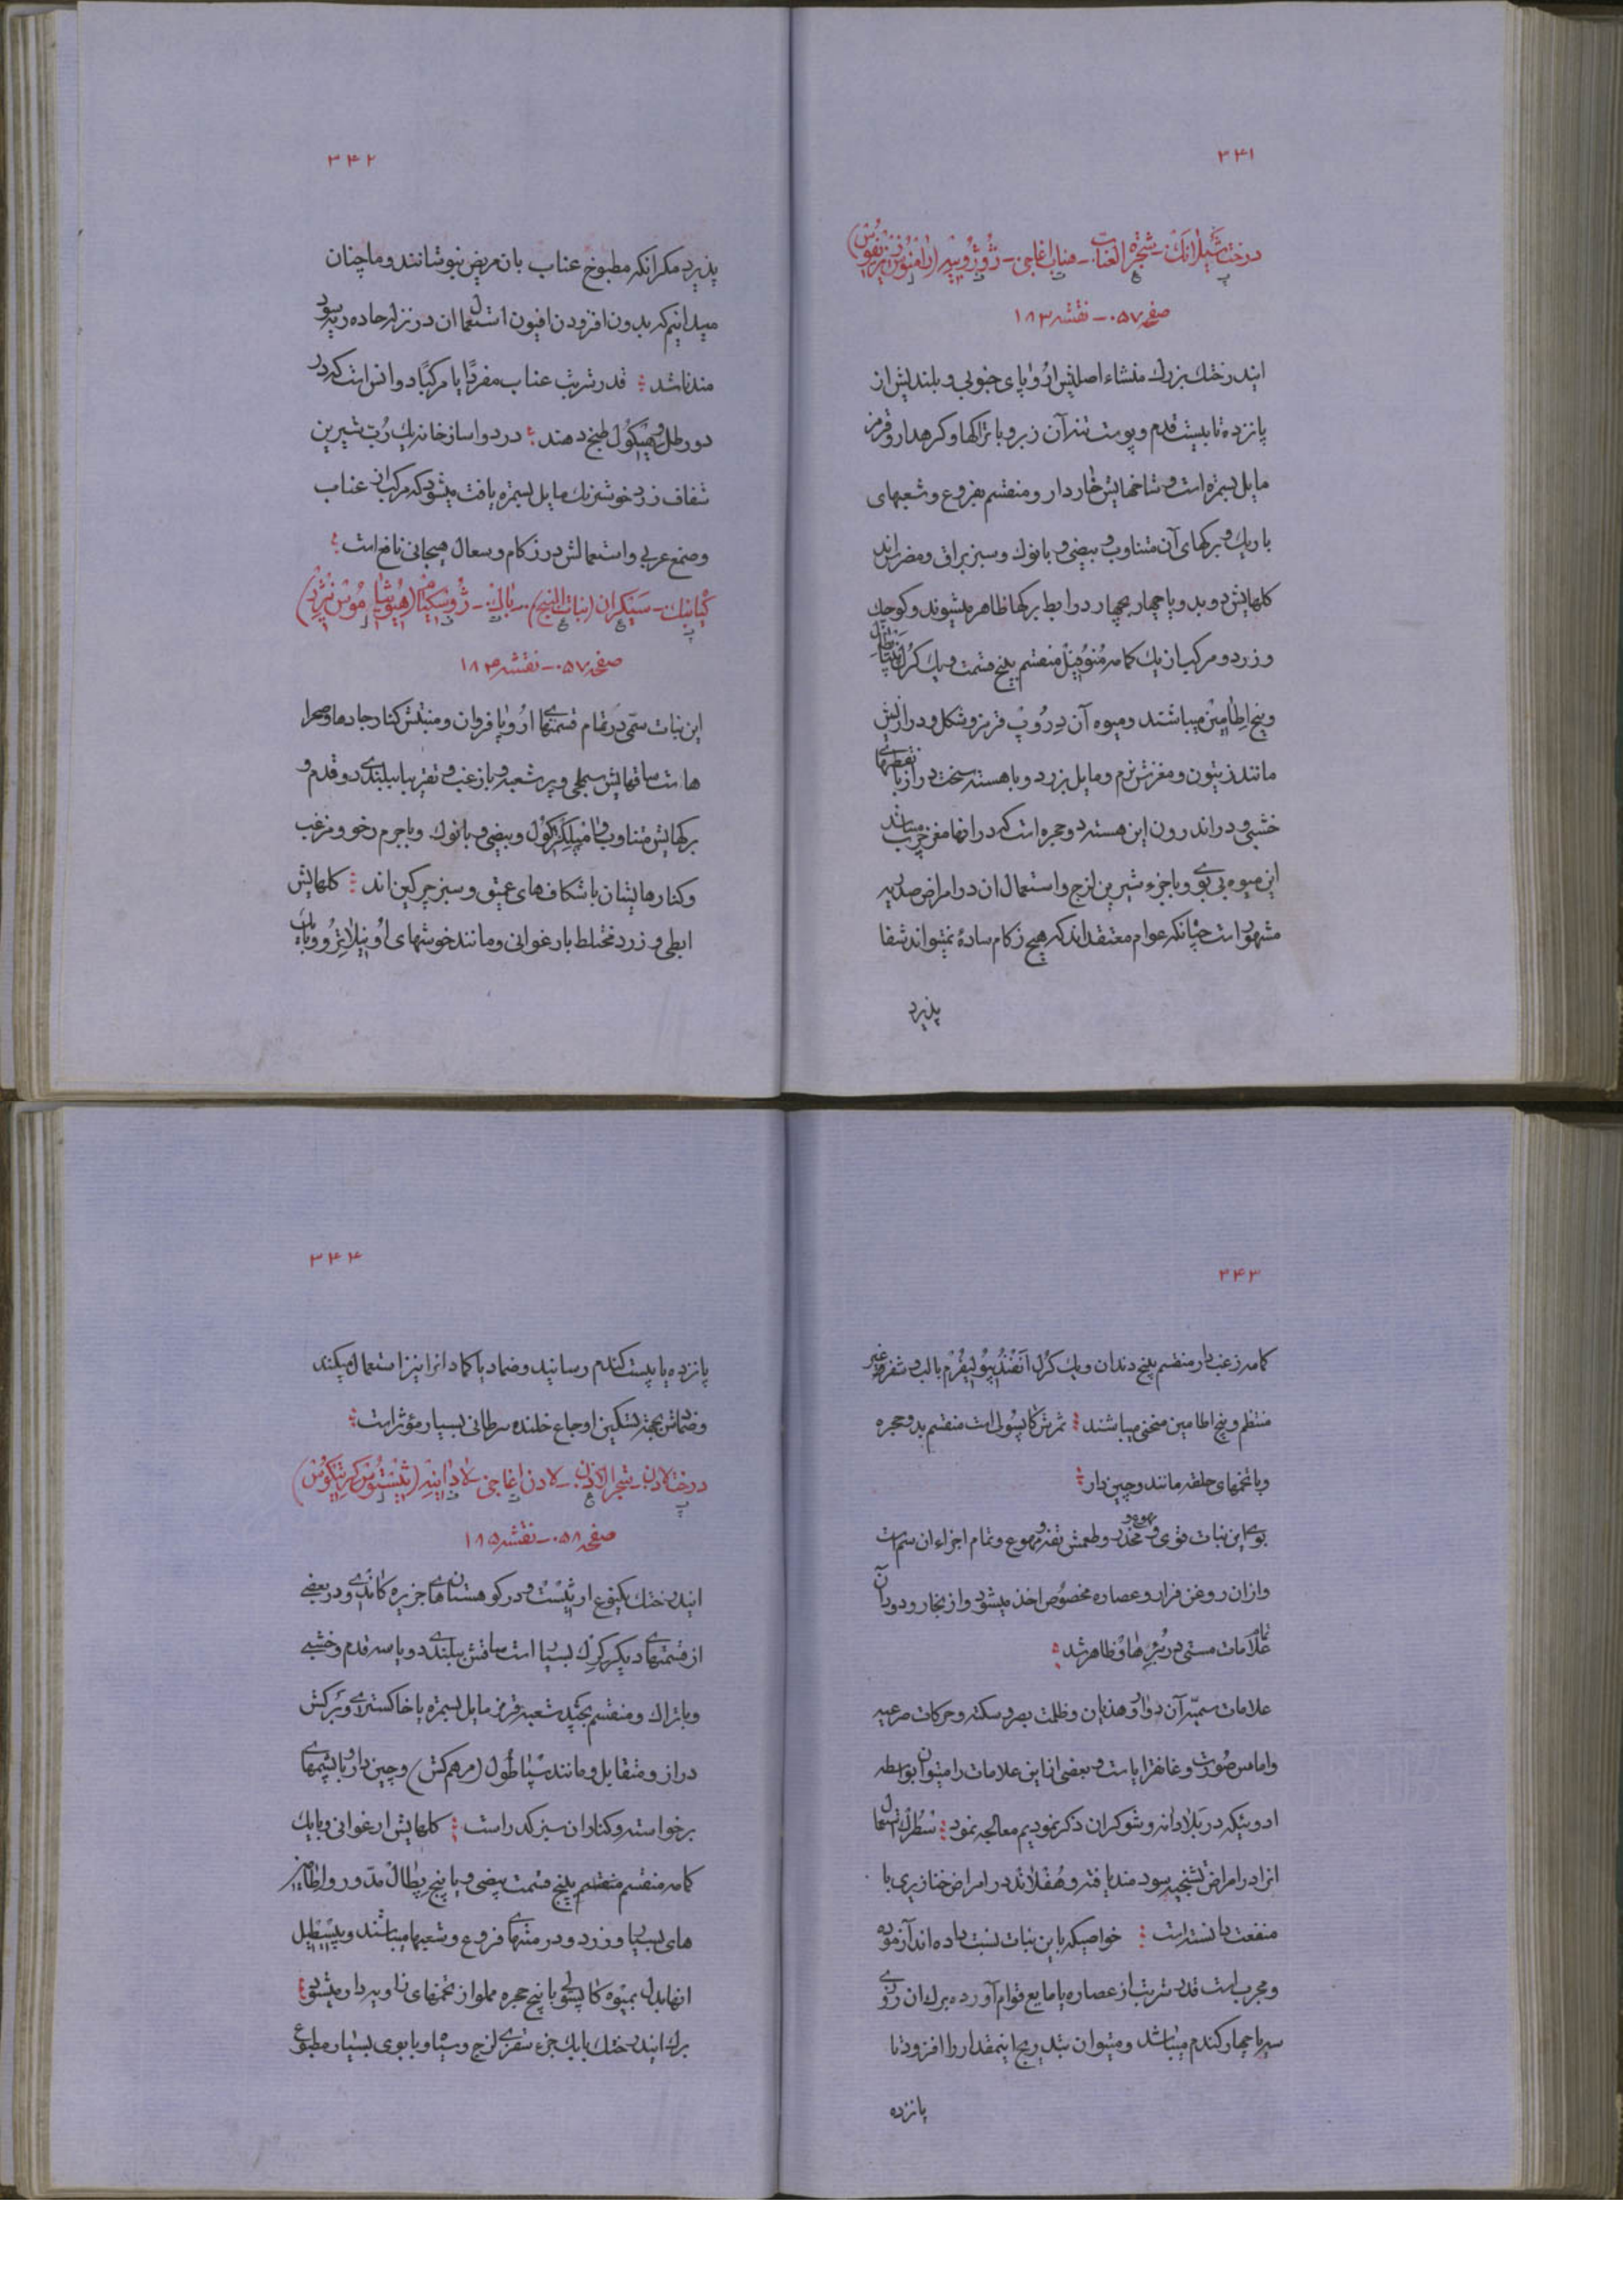 ۳۴۱
درخت شیلانک - شجرة العناب - عناب اغاجی - ژوژوبیه (رامنوس زیزیفوس)
صفحه ۰۵۷ - نقشه ۱۸۳
ایندرختك بزرك منشاء اصلیش اروپای جنوبی و بلندیش از
پانزده تا بیست قدم و پوست تنه آن زبر و با تراکها و کرهدار و قرمز
مایل بسمره است و شاخهایش خاردار و منقسم بفروع و شعبهای
باریك و برکهای آن متناوب و بیضی و بانوك و سبز براق و مضرس اند
کلهایش دو بدو یا چهار بچهار در ابط برکها ظاهر میشوند و کوچك
و زرد و مرکب از یك کاسه مُنوُسپَل منقسم بپنج قسمت و یك کرُل پنتاپطل
و پنج اطامین میباشند و میوه آن دِرُوپ قرمز و شکل و درازیش
مانند زیتون و مغزش نرم و مایل بزرد و با هسته سخت دراز با نقطهای
خشبی و در اندرون این هسته دو حجره است که در انها مغز چرب میباشد
این میوه بی بوی و با جزء شیرین لزج و استعمال ان در امراض صدریه
مشهور است چنانکه عوام معتقد اند که هیچ زکام سادهٔ نمیتواند شفا
پذیرد
۳۴۲
پذیرد مکر انکه مطبوخ عناب بان مریض بنوشانند و ما چنان
میدانیم که بدون افزودن افیون استعمال ان در نزله حاده ریه سود
مند نباشد قدر شربت عناب مفردًا یا مرکبًا دو انس است که در
دو رطل و میکول طبخ دهند در دواسازخانه یك رُبّ شیرین
شفاف زرد خوش رنك مایل بسمره یافت میشود که مرکب از عناب
و صمغ عربی و استعمالش در زکام و سعال هیجانی نافع است
کیابنك - سیکران (نبات البنج) - بانك - ژوسکیام (هیوشیاموس نیژر)
صفحه ۰۵۷ - نقشه ۱۸۴
این نبات سمّی در تمام قسمتهای اروپا فروان و منبتش کنار جادها و صحرا
هاست ساقهایش سجلی و پر شعبه و با زغب و تقریبا ببلندی دو قدم و
برکهایش متناوب و امپلکزکول و بیضی و بانوك و با جرم رخو و مزغب
و کنارهایشان با شکاف های عمیق و سبز چرکین اند کلهایش
ابطی و زرد مختلط بارغوانی و مانند خوشهای اونیلاترو و با یك
۳۴۳
کاسه زغب دار منقسم بپنج دندان و یك کرل انفندیبولیفرم با لب و شفره غیر
منتظم و پنج اطامین منحنی میباشند ثمرش کاپسولی است منقسم بدو حجره
و با تخمهای حلقه مانند و چین دار
بوی این نبات قوی و مهوع و مخدر و طعمش تفه و مهوع و تمام اجزاء ان سم است
و از ان روغن فرار و عصاره مخصوص اخذ میشود و از بخار و دود آن
تمام علامات مستی در ظاهر شد
علامات سمیه آن دوار و هذیان و ظلمت بصر و سکته و حرکات صرعیه
و اماس صورت و غانغرایا است و بعضی از این علامات را میتوان بواسطه
ادویئکه در بلادانه و شوکران ذکر نمودیم معالجه نمود سطرك استعمال
انرا در امراض تشنجیه سودمند یافته و هفلاند در امراض خنازیری با
منفعت دانسته است خواصیکه باین نبات نسبت داده اند آزموده
و مجرب است قدر شربت از عصاره یا مایع قوام آورده برك ان روزی
سه یا چهار کندم میباشد و میتوان بتدریج اینمقدار را افزود تا
پانزده
۳۴۴
پانزده یا بیست کندم رسانید و ضماد یا کماد انرا نیز استعمال میکنند
و ضمادش بجهة تسکین اوجاع خلنده سرطانی بسیار مؤثر است
درخت لادن - شجر الاذن - لادن اغاجی - لادانیه (ثیستوس کرتیکوس)
صفحه ۰۵۸ - نقشه ۱۸۵
ایندرختك یکنوع از ثیست و در کوهستان های جزیره کاندی و در بعضی
از قسمتهای دیکر کرك بسیار است ساقش ببلندی دو یا سه قدم و خشبی
و با تراك و منقسم بچند شعبه قرمز مایل بسمره یا خاکستری و برکش
دراز و متقابل و مانند سپاطول (مرهم کش) و چین دار و با پشمهای
برخواسته و کناران سبز کدر است کلهایش ارغوانی و با یك
کاسه منقسم منقسم بپنج قسمت بیضی و با پنج پطال مدّور و اطامیر
های بسیار و زرد و در منتهای فروع و شعبها میباشند و پیستیل
انها بدل بمیوه کاپسولی با پنج حجره مملو از تخمهای زاویه دار میشود
برك ایندرختك با یك جزء سقزی لزج و سیاه و با بوی بسیار مطبوع